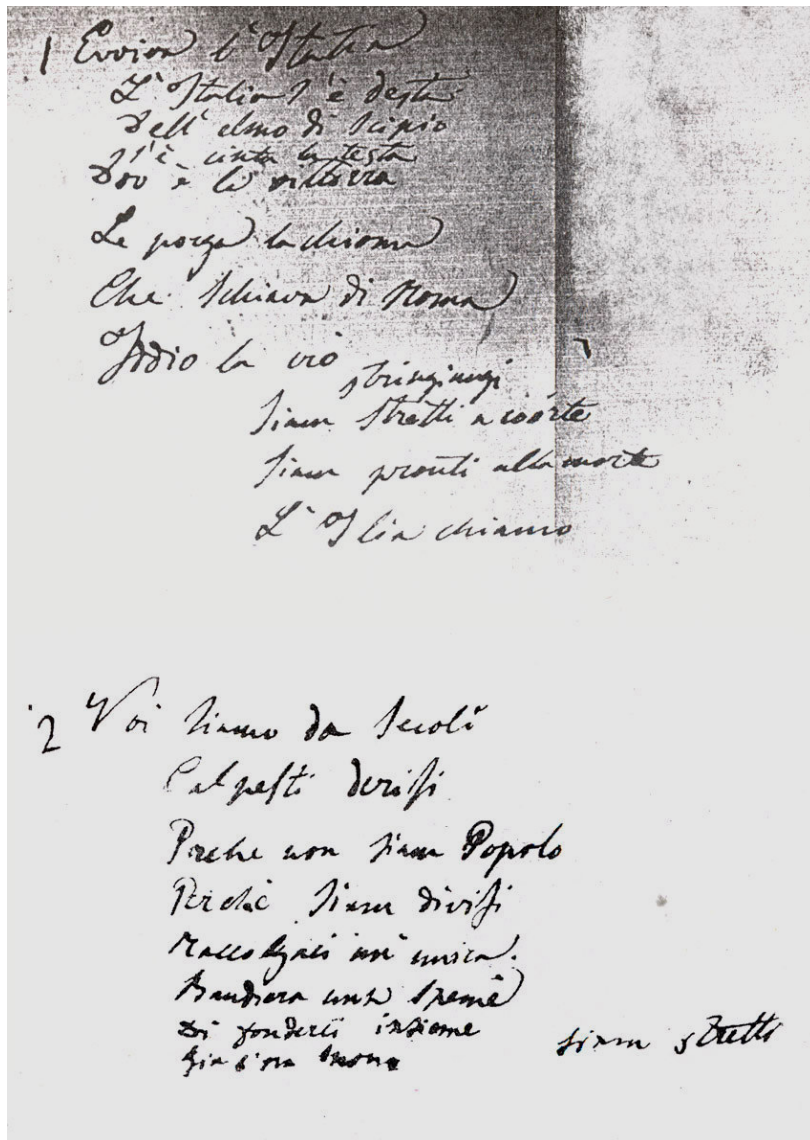 1 Evviva l'Italia
L'Italia s'è desta
Dell'elmo di Scipio
s'è cinta la testa
Dov'è la vittoria
Le porga la chioma
Che schiava di Roma
Iddio la creò
stringiamci
siam stretti a coorte
siam pronti alla morte
L'Italia chiamò
2 Noi siamo da secoli
Calpesti derisi
Perche non siam Popolo
Perché siam divisi
Raccolgaci un'unica
Bandiera una speme
Di fonderci insieme
Già l'ora suonò
siam stretti